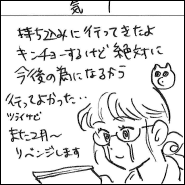 気　ー
持ち込みに行ってきたよ
キンチョーするけど絶対に
今後の為になるから
行ってよかった‥
ツライケド
また2月〜
リベンジします